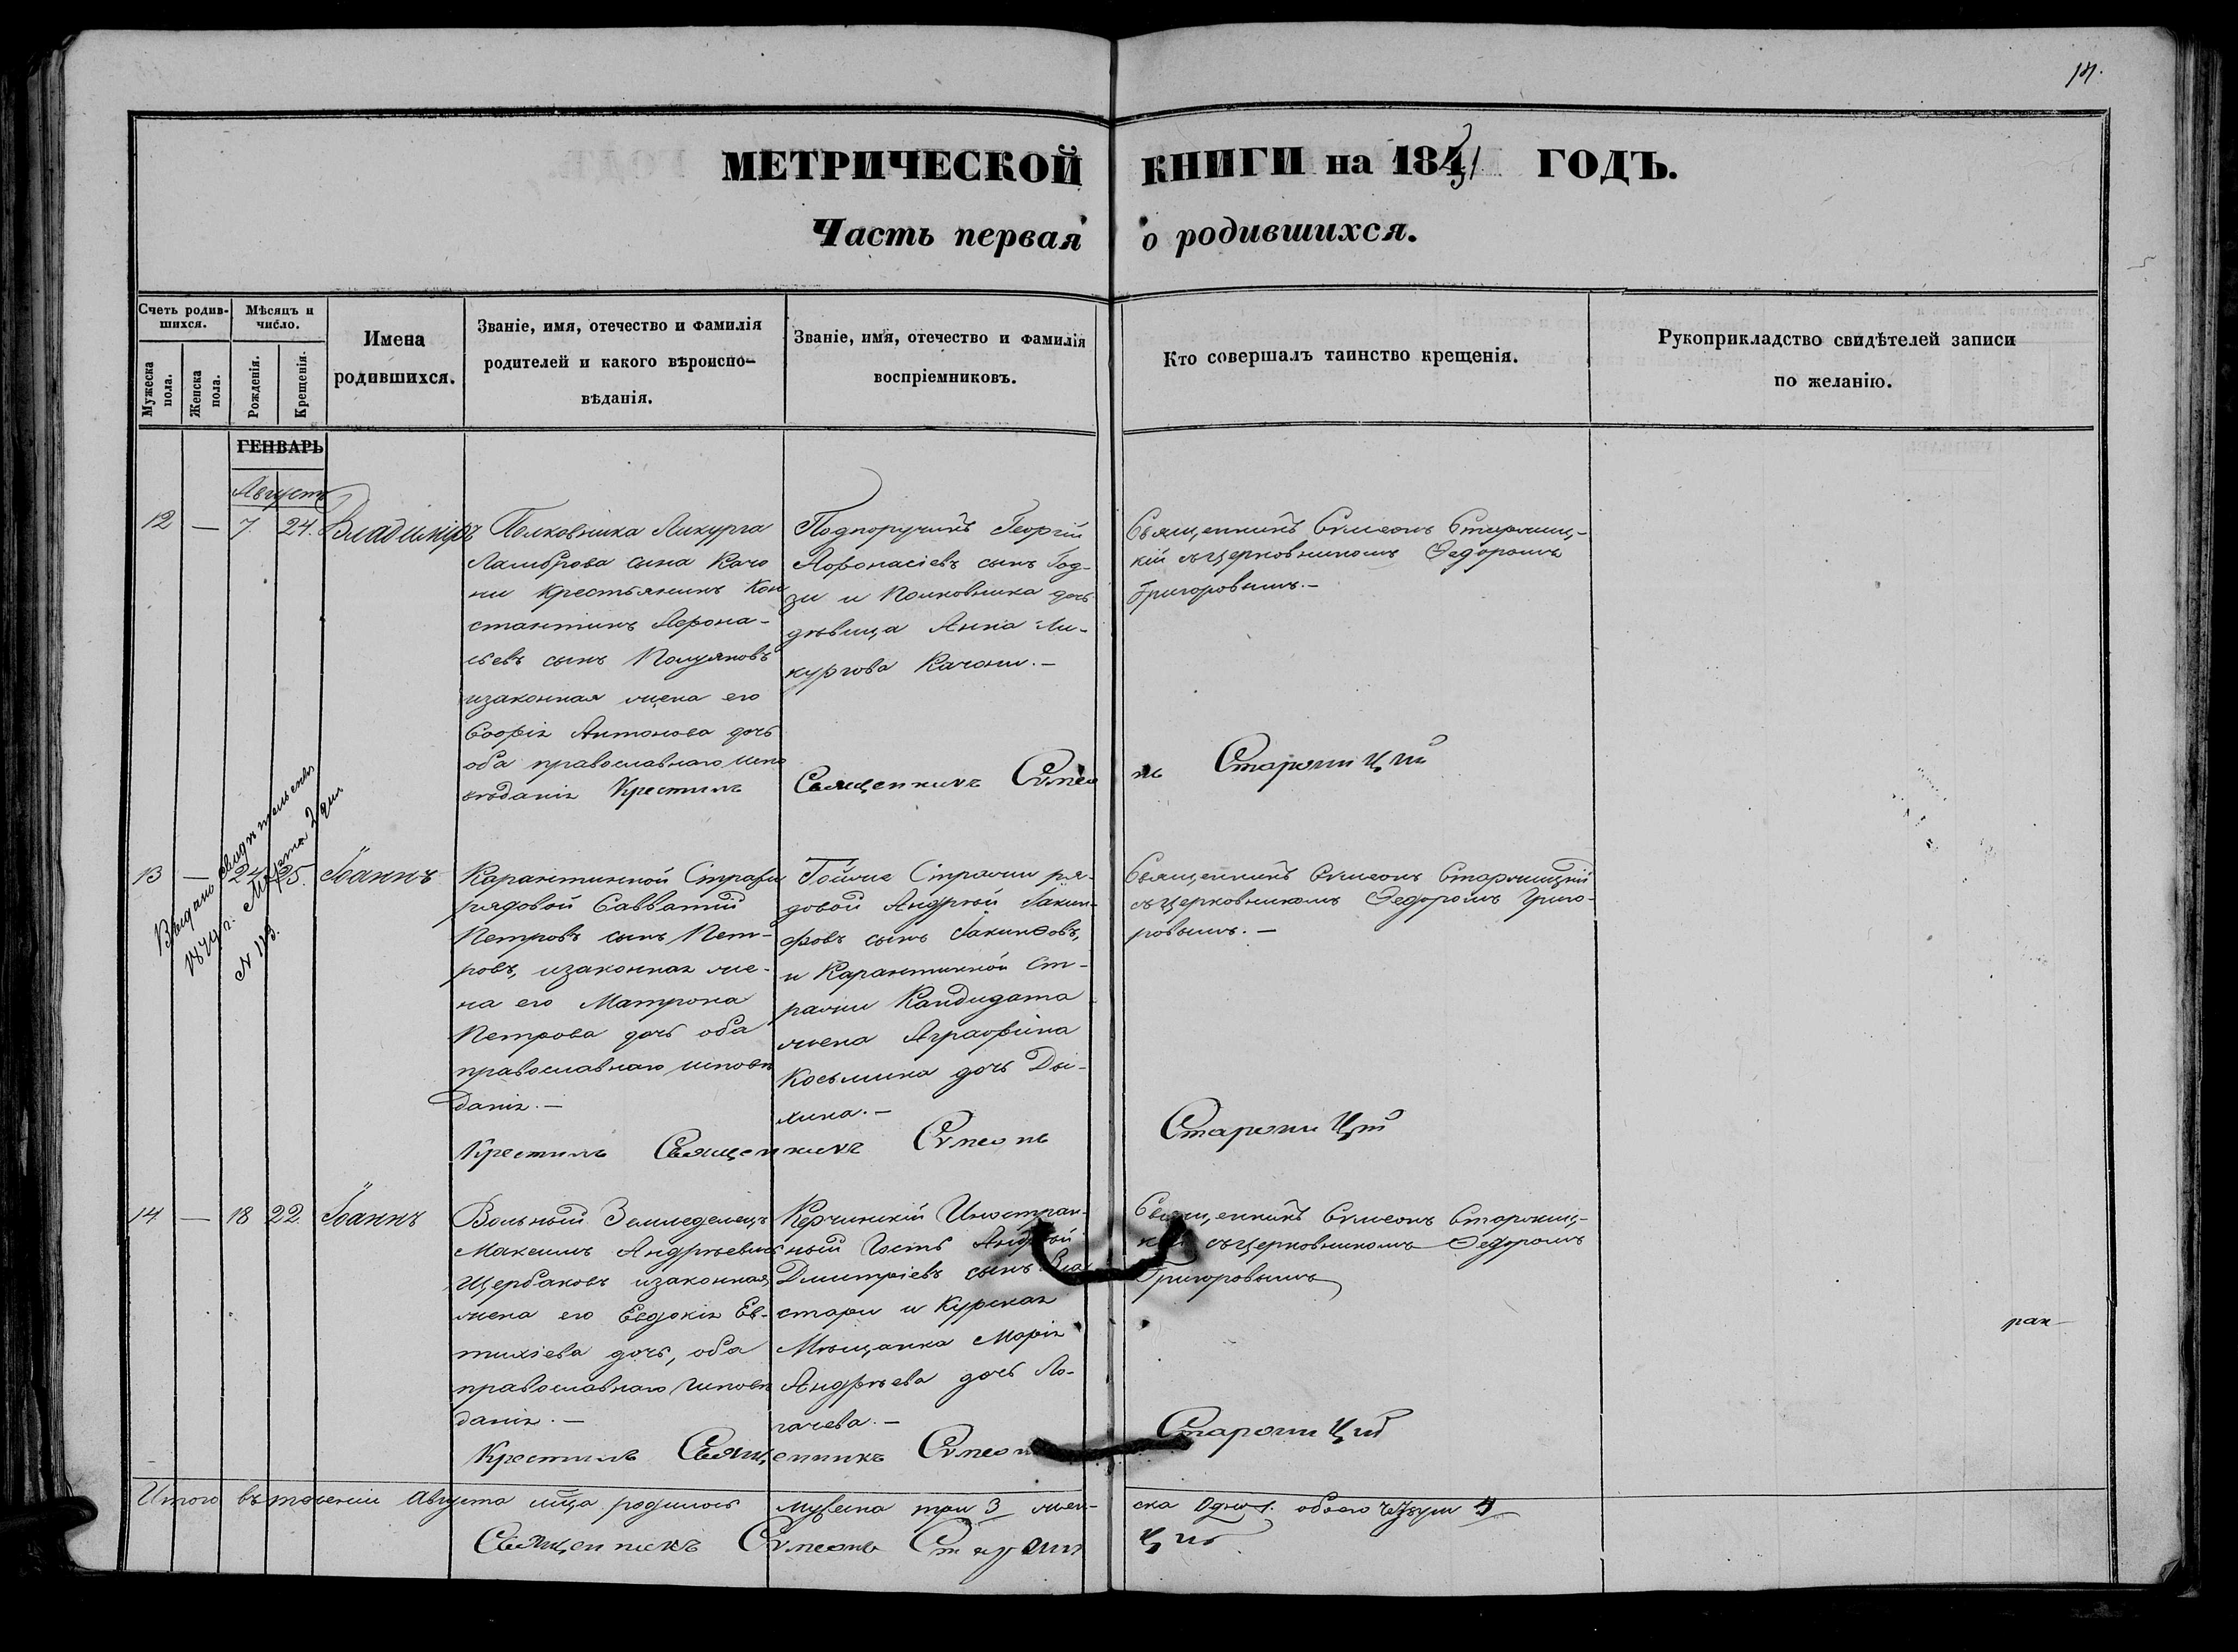 МЕТРИЧЕСКОЙ КНИГИ на 1851 ГОДЪ.
Часть первая о родившихся.
Счетъ родив-
шихся.
Мужеска
пола.
Женска
пола.
Мѣсяцъ и
число.
Рожденія.
Крещенія.
Имена
родившихся.
Званіе, имя, отечество и фамилія
родителей и какого вѣроиспо-
вѣданія.
Званіе, имя, отечество и фамилія
воспріемниковъ.
Кто совершалъ таинство крещенія.
Рукоприкладство свидѣтелей записи
по желанію.
ГЕНВАРЬ
Августъ
12 — 7. 24. Владиміръ
Полковника Ликурга
Ламброва сына Качо
ни крестьянинъ Кон
стантинъ Афона-
сьевъ сынъ Полуяновъ
изаконная жена его
Софія Антонова дочь
оба православнаго испо
вѣданія Крестилъ
Подпоручикъ Георгій
Афонасіевъ сынъ Год-
зи и Полковника дочь
дѣвица Анна Ли-
кургова Качони.—
Священникъ Сѵмео
Священникъ Сѵмеонъ Старжиц-
кій съцерковникомъ Федоромъ
Григоровымъ.—
нъ Старжицкій
13 — 24 25. Іоаннъ
Выдано свидѣтельство
Марта 2 дня
N 113.
Карантинной Стражи
рядовой Савватій
Петровъ сынъ Пет-
ровъ, изаконная же-
на его Матрона
Петрова дочь оба
православнаго исповѣ
данія.—
Крестилъ Священникъ Сѵмеонъ
Тойже Стражи ря-
довой Андрей Іакин-
фовъ сынъ Іакинѳовъ,
и Карантинной Ст-
ражи Кандидата
жена Аграфина
Косьмина дочь Ди-
хина.—
Священникъ Сѵмеонъ Старжицкій
съцерковникомъ Федоромъ Григо-
ровымъ.—
Старжицкій
14. — 18 22 Іоаннъ
Вольный Земледелецъ
Максимъ Андрѣевичъ
Щербаковъ изаконная
жена его Евдокія Ев-
тихіева дочь, оба
православнаго исповѣ
данія.—
Крестилъ Священникъ Сѵмеонъ
Керчинскій Иностран-
ный Гость Андрей
Дмитріевъ сынъ Вла
стари и Курская
Мѣщанка Марія
Андрѣева дочь Ло-
гачева.—
Священникъ Сѵмеонъ Старжиц-
кій съцерковникомъ Федоромъ
Григоровымъ
Старжицкій
Итого въ теченіи Августа мца родилось мужеска три 3 жен-
ска Одна 1. обоего 4
Священникъ Сѵмеонъ Старжицкій